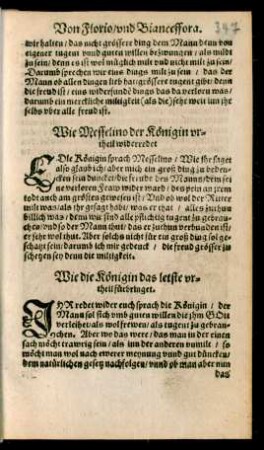 Von Florio/vnd Bianceffora. 347
wir halten / das nicht grössere ding dem Mann dann von
eigener tugent vnnd guten willen bezwungen / als milt
zu sein / denn es ist wol müglich milt vnd nicht milt zu sein /
Darumb sprechen wir eins dings milt zu sein / das der
Mann ob allen dingen lieb hat: grösser tugent gibt / denn
die freud ist / eins widerfundē dings das da verlorn was /
darumb ein merckliche miltigkeit (als die) sehr weit umb ihr
selbs vber alle freud ist.
Wie Messelino der Königin vr-
theil widerredet
DIe Königin sprach Messelino / Wie ihr saget
also glaub ich / aber mich ein groß ding zu beden-
cken sein duncket / die freude des Manns / dem sei-
ne verloren Fraw wider ward / des pein an jrem
todt auch am grösten gewesen ist / Vnd ob wol der Ritter
milt was / als ihr gesagt habt / was er that / als zuthun
billich was / denn wir sind alle pflichtig tugent zu gebrau-
chen / vnd so der Mann thut / das er zuthun verbunden ist /
er sehr wol thut. Aber solchs nicht für ein groß ding sol ge-
schatzt sein / darumb ich mir gedenck / die freud grösser zu
schetzen sey denn die miltigkeit.
Wie die Königin das letste vr-
theil fürbringet.
IHR redet wider euch sprach die Königin / der
Mann sol sich vmb guten willen die jhm GOtt
verleihet / als wol frewen / als an tugent zu gebrau-
chen. Aber wo das were / das man in der einen
sach möcht trawrig sein / als inn der anderen vnmilt / so
möcht man wol nach ewerer meynung vnnd gut düncken /
dem natürlichen gesetz nachfolgen / vnnd ob man aber nun
das